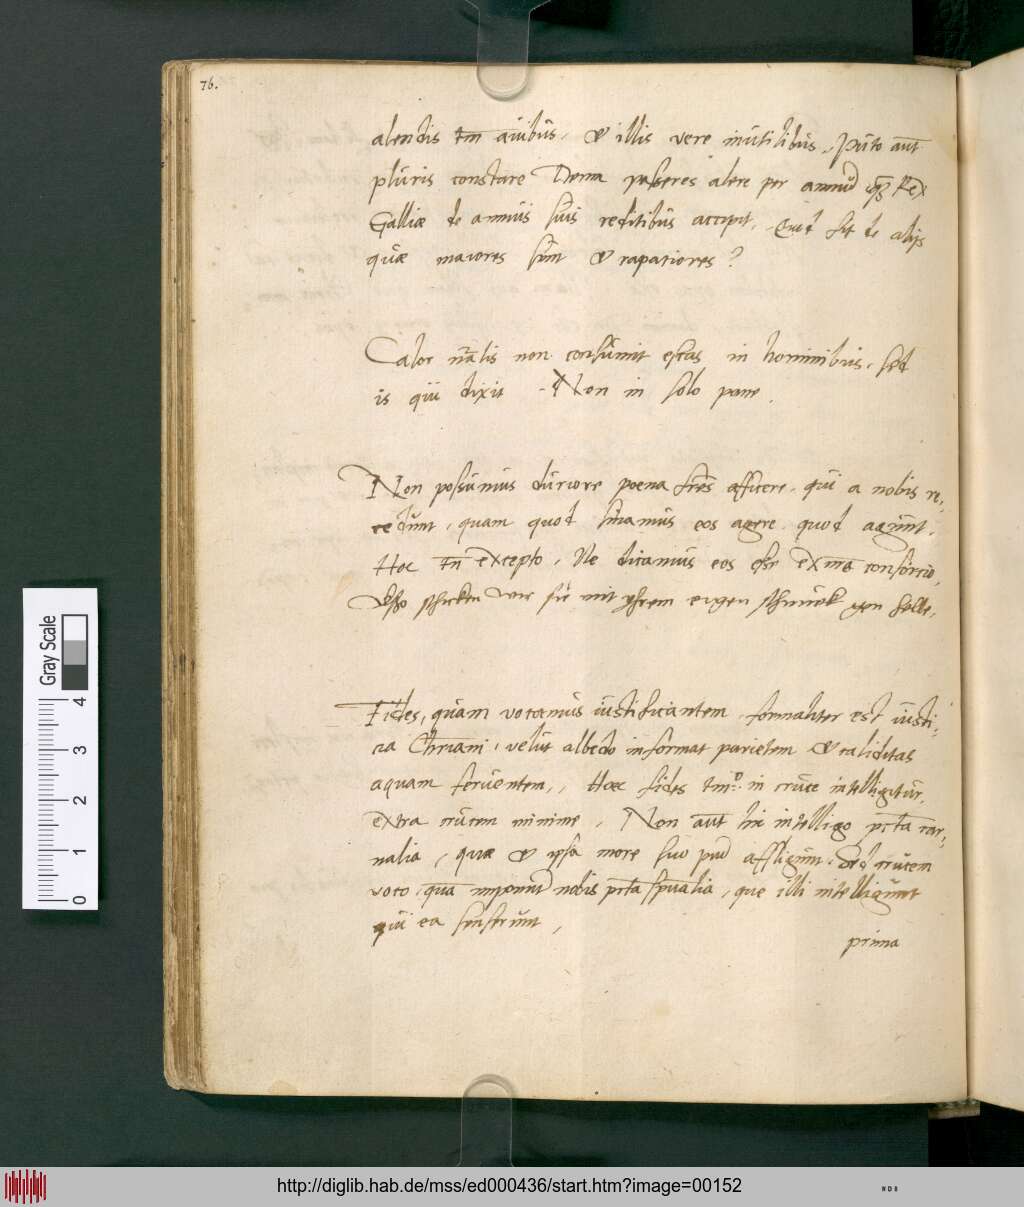 76.
alendis tm̄ auibus, & illis vere inutilibus. Puto aūt
pluris constare Deum passeres alere per annum q̄ Rex
Galliæ de annuis suis reditibus accepit. Quid sit de alijs
quæ maiores sunt & rapatiores?
Calor nr̄alis non consumit escas in hominibus, sed
is qui dixit. Non in solo pane.
Non possumus duriore poena frēs afficere, qui a nobis re-
cedunt, quam quod sinamus eos agere quod agunt.
Hoc tn̄ excepto, Ne dicamus eos esse ex nr̄o consortio,
schicken wir sie mit yhrem eigen schmuck gen helle.
Fides, quam vocamus iustificantem formaliter est iusti-
cia Chrīani, velut albedo informat parietem & caliditas
aquam feruentem,, Hæc fides tm̄o in cruce intelligitur,
extra crucem minime, Non aūt hic intelligo pctā car-
nalia, quæ & ipsa more suo affligunt. Sed crucem
voco, quā imponūt nobis pctā spūalia, que illi intelligunt
qui ea senserunt,
prima
Gray Scale
4
3
2
1
0
http://diglib.hab.de/mss/ed000436/start.htm?image=00152